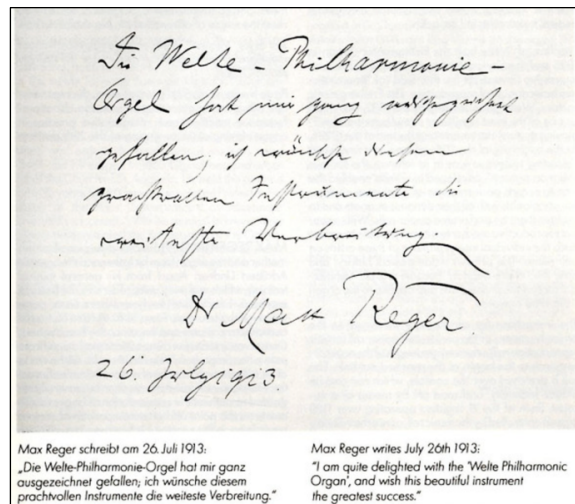 Die Welte-Philharmonie-
Orgel hat mir ganz ausgezeichnet
gefallen; ich wünsche diesem
prachtvollen Instrumente die
weiteste Verbreitung.
Dr Max Reger.
26. July 1913.
Max Reger schreibt am 26. Juli 1913:
„Die Welte-Philharmonie-Orgel hat mir ganz
ausgezeichnet gefallen; ich wünsche diesem
prachtvollen Instrumente die weiteste Verbreitung.“
Max Reger writes July 26th 1913:
"I am quite delighted with the 'Welte Philharmonic
Organ', and wish this beautiful instrument
the greatest success."